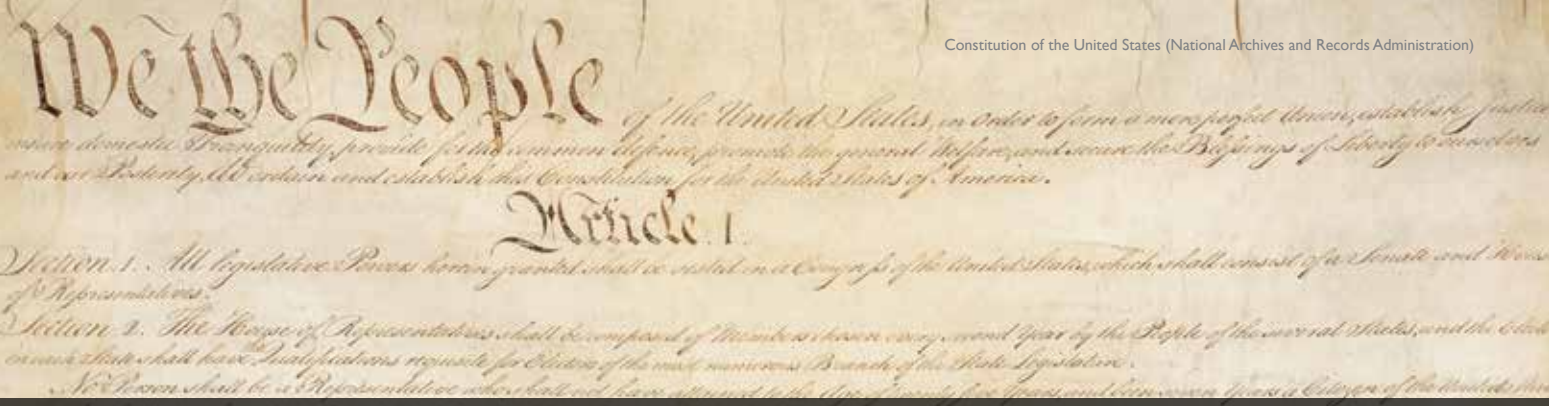 Constitution of the United States (National Archives and Records Administration)
We the People of the United States, in Order to form a more perfect Union, establish Justice
insure domestic Tranquility, provide for the common defence, promote the general Welfare, and secure the Blessings of Liberty to ourselves
and our Posterity, do ordain and establish this Constitution for the United States of America.
Article. I.
Section. 1. All legislative Powers herein granted shall be vested in a Congress of the United States, which shall consist of a Senate and House
of Representatives.
Section. 2. The House of Representatives shall be composed of Members chosen every second Year by the People of the several States, and the
in each State shall have Qualifications requisite for Electors of the most numerous Branch of the State Legislature.
No Person shall be a Representative who shall not have attained to the Age of twenty five Years, and been seven Years a Citizen of the United States